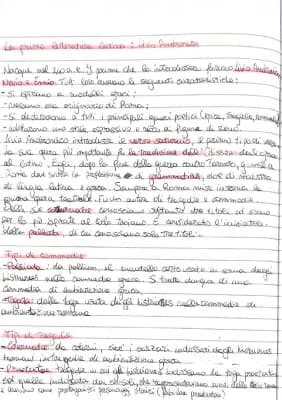 La prima letteratura latina: Livio Andronico
Nacque nel III a.C. I primi che la introdussero furono Livio Andronico,
Nevio e Ennio. Tutti loro avevano le seguenti caratteristiche:
- Si ispirano a modelli greci;
- nessuno era originario di Roma;
- Si dedicarono a tutti i principali generi poetici (epica, tragedia, commedia)
- utilizzarono uno stile espressivo e ricco di figure di suono.
Livio Andronico introdusse il verso saturnio, il primo tipo di
la sua opera più importante fu la traduzione dell'Odissea dal greco
al latino. Egli, dopo la fine della guerra contro Taranto, si
Roma dove svolse la professione di grammaticus, cioè di maestro
di lingua latina e greca. Sempre a Roma mise in scena la
prima opera teatrale. Fu un autore di tragedie e commedie.
Delle sue conosciamo soltanto titoli
per lo più ispirate al ciclo troiano. È considerato l'iniziatore
della palliata, di cui conosciamo solo tre titoli.
Tipi di commedie
- Palliata: da pallium, il mantello corto usato in scena dagli
histriones nelle commedie greche. Si tratta dunque di una
commedia di ambientazione greca.
- Togata: dalla toga usata dagli histriones nelle commedie di
ambientazione romana.
Tipi di tragedie
- Coturnata: da coturni, cioè i calzari indossati dagli histriones
romani in tragedie di ambientazione greca
- Praetexta: tragedia in cui gli histriones indossano la toga praetexta
cioè quella indossata dai consoli, che rappresentavano
e avevano come protagonisti personaggi storici (fabulae praetextae)